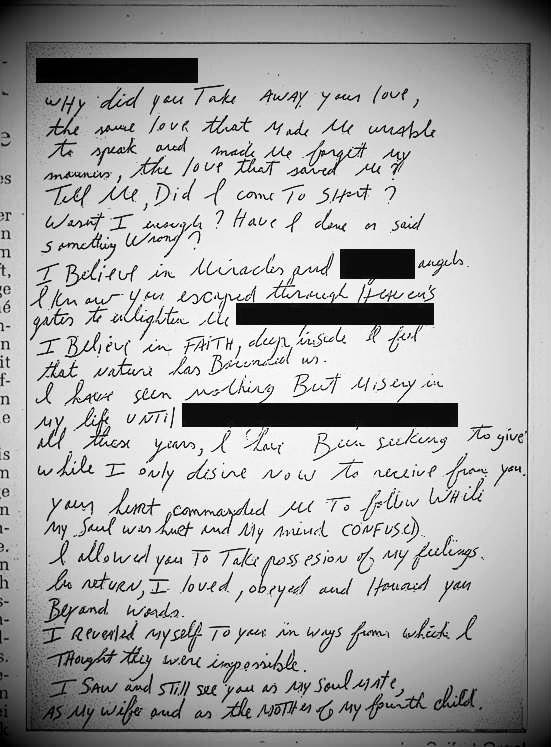 WHY did you Take AWAY your love,
the same love that Made Me unable
to speak and made Me forgett my
manners, the love that saved Me?
Tell Me, Did I come To SHort?
Wasnt I enough? Have I done or said
something Wrong?
I Believe in Miracles and angels.
I know you escaped through HEAVEN'S
gates to enlighten Me
I BEliEve in FAITH, deep inside I feel
that nature has us.
I have seen nothing But Misery in
my life UNTil
all these years, I have Been seeking to give
while I only desire NOW to receive from you.
your heart commanded Me To follow WHile
My Soul was hurt and My mind CONFUSED.
I allowed you To Take possesion of my feelings.
In return, I loved, obeyed and Honored you
Beyond words.
I REvealed Myself To you in ways from which I
THought they were impossible.
I SAW and STill see you as My Soul Mate,
AS My wife and as the MOTHER of My fourth child.
e
es
er
n
ft,
ge
n-
n
it
f-
n
e
is
n
e
n
n-
e.
n
h
s-
s.
ei
k